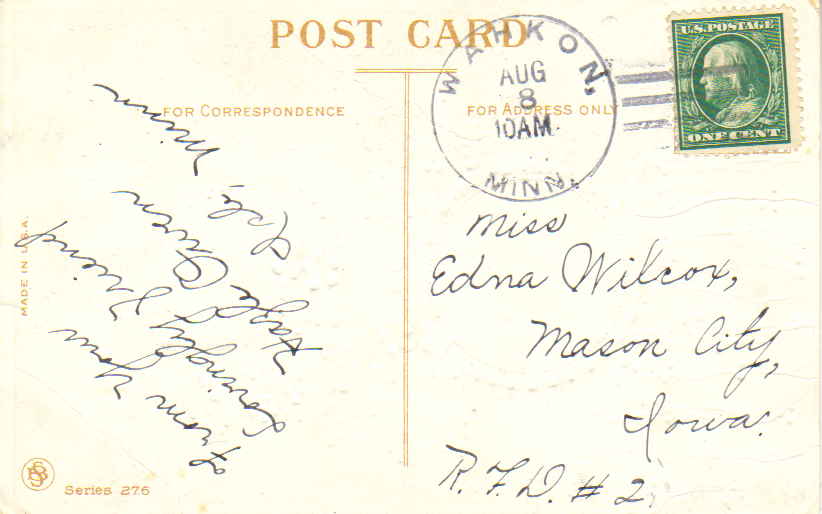 POST CARD
FOR CORRESPONDENCE
FOR ADDRESS ONLY
WAHKON,
AUG
8
10AM
MINN.
U.S. POSTAGE
ONE CENT
From Your
Friend
Hazel
Isle,
Minn
Miss
Edna Wilcox,
Mason City,
Iowa.
R.F.D. # 2,
MADE IN U.S.A.
Series 276